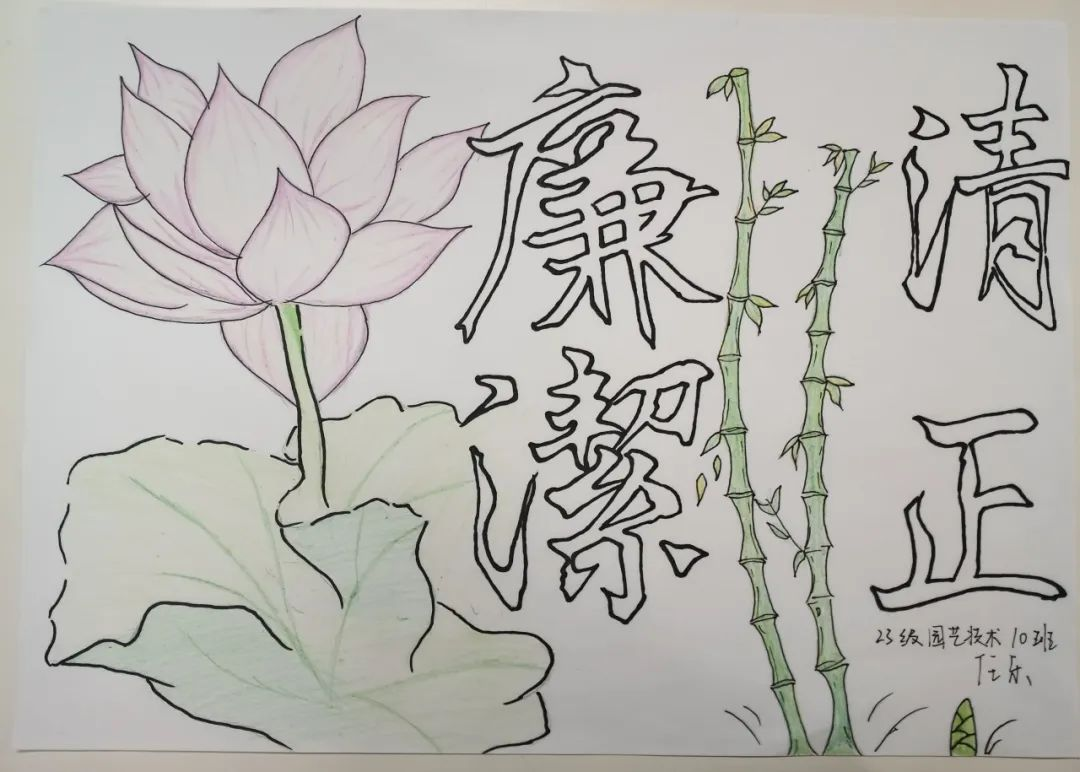 清正
廉潔
23级园艺技术10班
任乐